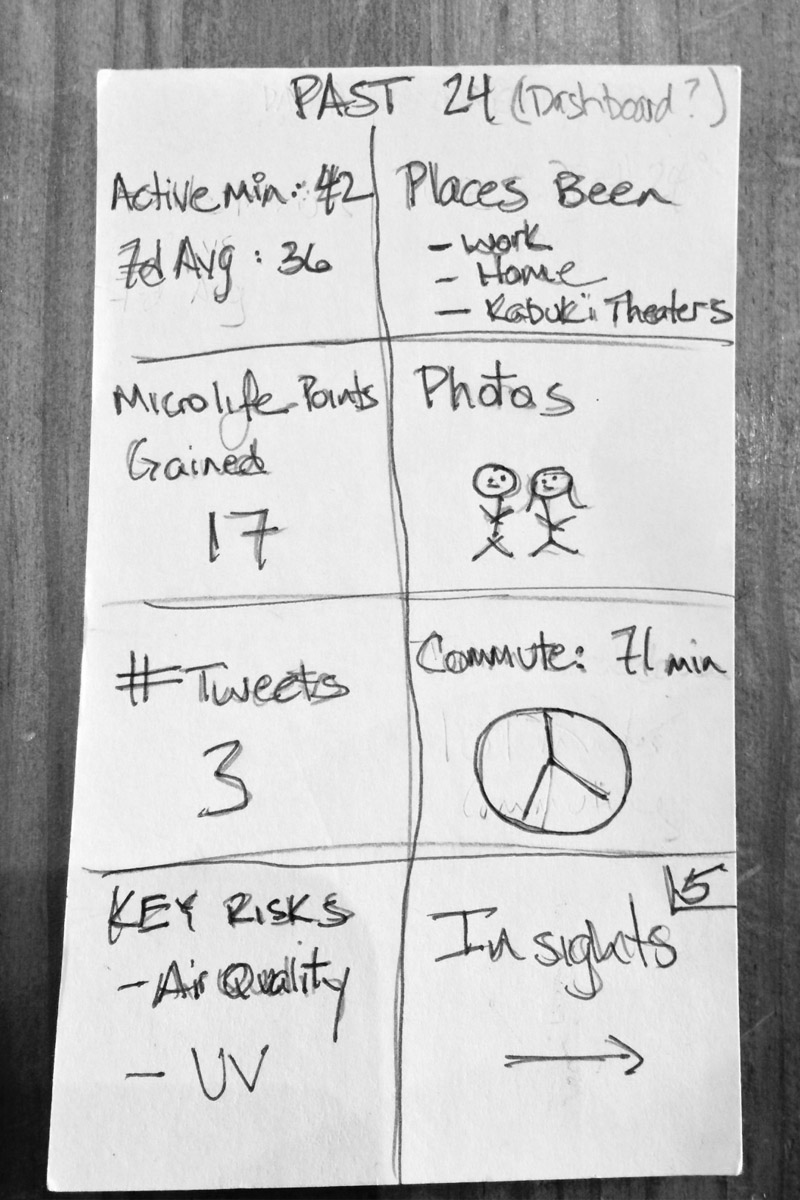 PAST 24 (Dashboard?)
Active Min: 42
7d Avg: 36
Places Been
- Work
- Home
- Kabuki Theaters
Microlife Points
Gained
17
Photos
# Tweets
3
Commute: 71 min
KEY RISKS
- Air Quality
- UV
5
Insights